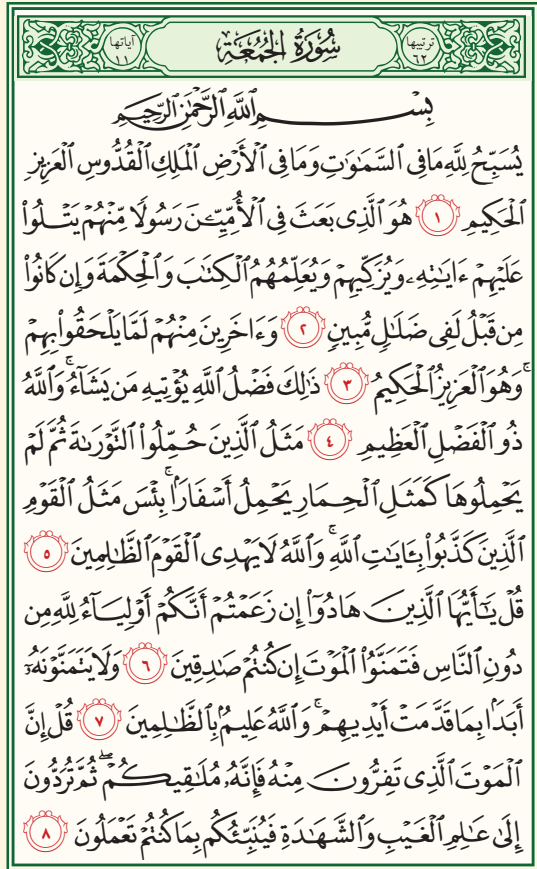 ترتيبها ٦٢ سُورَةُ الجُمُعَةِ آياتها ١١
بِسْمِ اللَّهِ الرَّحْمَٰنِ الرَّحِيمِ
يُسَبِّحُ لِلَّهِ مَا فِى السَّمَٰوَٰتِ وَمَا فِى الْأَرْضِ الْمَلِكِ الْقُدُّوسِ الْعَزِيزِ
الْحَكِيمِ ١ هُوَ الَّذِى بَعَثَ فِى الْأُمِّيِّۦنَ رَسُولًا مِّنْهُمْ يَتْلُوا۟
عَلَيْهِمْ ءَايَٰتِهِۦ وَيُزَكِّيهِمْ وَيُعَلِّمُهُمُ الْكِتَٰبَ وَالْحِكْمَةَ وَإِن كَانُوا۟
مِن قَبْلُ لَفِى ضَلَٰلٍ مُّبِينٍ ٢ وَءَاخَرِينَ مِنْهُمْ لَمَّا يَلْحَقُوا۟ بِهِمْ
ۚ وَهُوَ الْعَزِيزُ الْحَكِيمُ ٣ ذَٰلِكَ فَضْلُ اللَّهِ يُؤْتِيهِ مَن يَشَآءُ ۚ وَاللَّهُ
ذُو الْفَضْلِ الْعَظِيمِ ٤ مَثَلُ الَّذِينَ حُمِّلُوا۟ التَّوْرَىٰةَ ثُمَّ لَمْ
يَحْمِلُوهَا كَمَثَلِ الْحِمَارِ يَحْمِلُ أَسْفَارًۢا ۚ بِئْسَ مَثَلُ الْقَوْمِ
الَّذِينَ كَذَّبُوا۟ بِـَٔايَٰتِ اللَّهِ ۚ وَاللَّهُ لَا يَهْدِى الْقَوْمَ الظَّٰلِمِينَ ٥
قُلْ يَٰٓأَيُّهَا الَّذِينَ هَادُوٓا۟ إِن زَعَمْتُمْ أَنَّكُمْ أَوْلِيَآءُ لِلَّهِ مِن
دُونِ النَّاسِ فَتَمَنَّوُا۟ الْمَوْتَ إِن كُنتُمْ صَٰدِقِينَ ٦ وَلَا يَتَمَنَّوْنَهُۥٓ
أَبَدًۢا بِمَا قَدَّمَتْ أَيْدِيهِمْ ۚ وَاللَّهُ عَلِيمٌۢ بِالظَّٰلِمِينَ ٧ قُلْ إِنَّ
الْمَوْتَ الَّذِى تَفِرُّونَ مِنْهُ فَإِنَّهُۥ مُلَٰقِيكُمْ ۖ ثُمَّ تُرَدُّونَ
إِلَىٰ عَٰلِمِ الْغَيْبِ وَالشَّهَٰدَةِ فَيُنَبِّئُكُم بِمَا كُنتُمْ تَعْمَلُونَ ٨